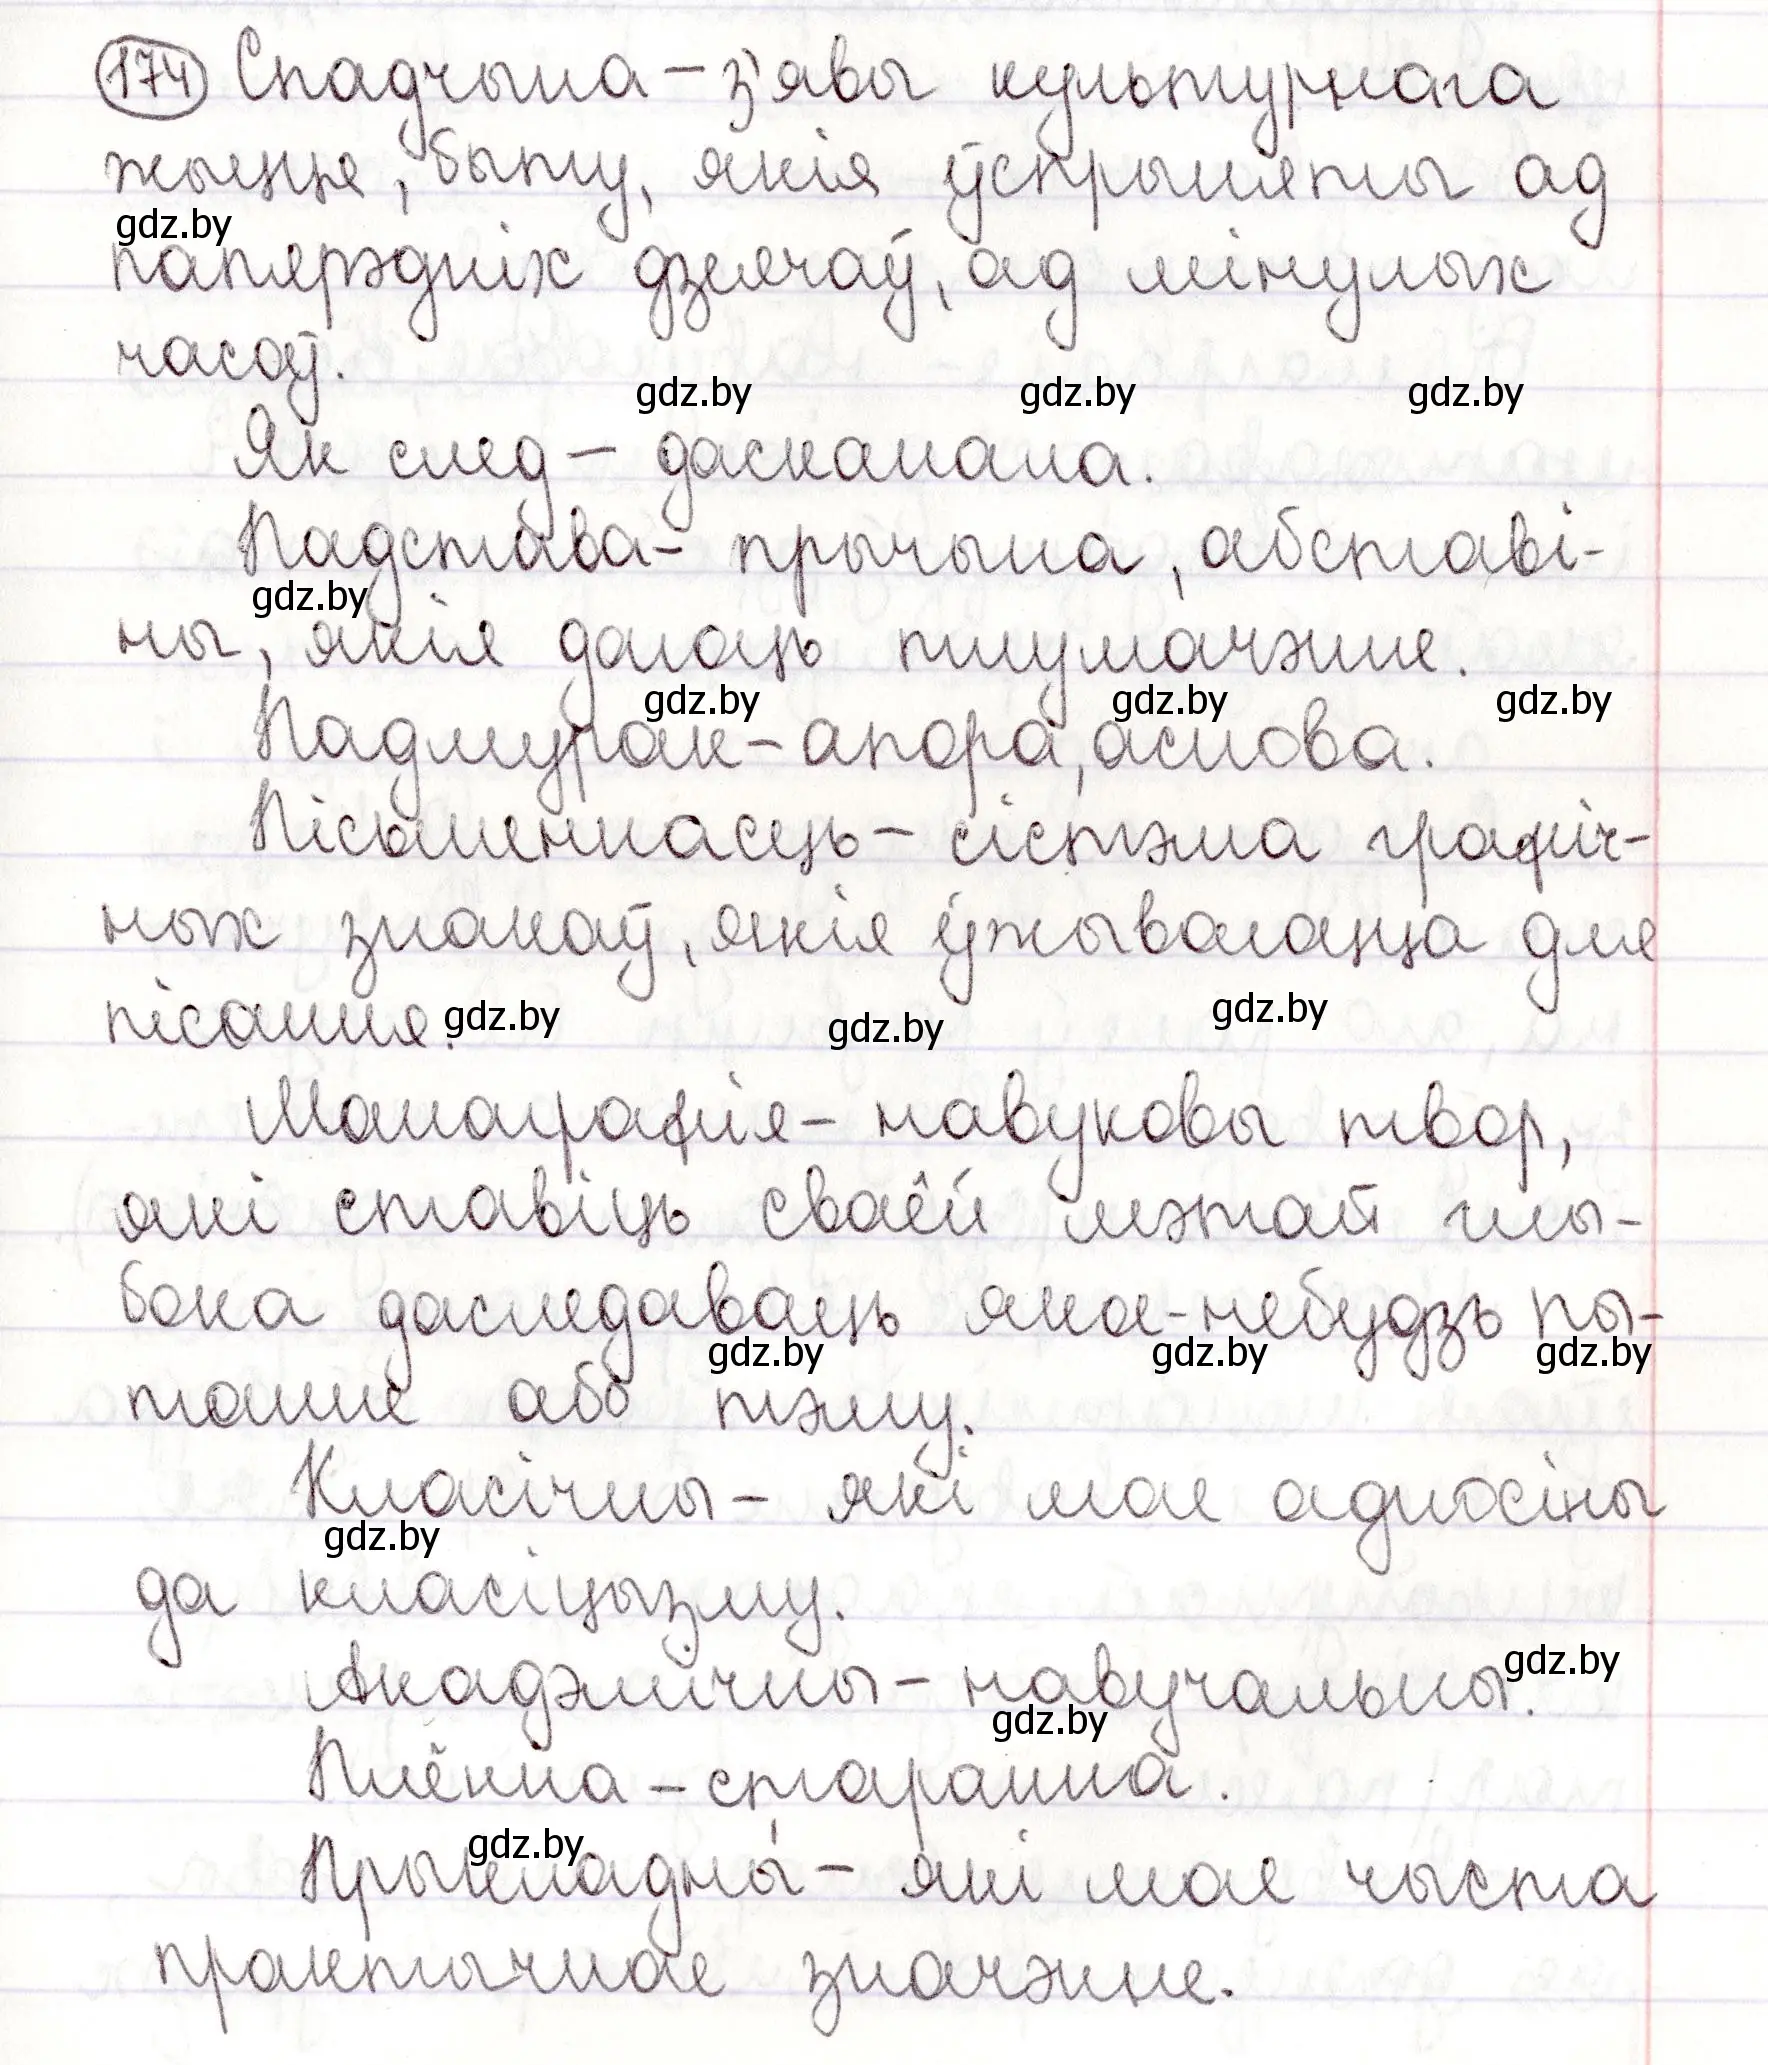 174 Спадчына – з'явы культурнага
жыцця, быту, якія ўспрыняты ад
gdz.by
папярэдніх дзеячаў, ад мінулых
часоў.
gdz.by gdz.by gdz.by
Як след – дасканала.
Падстава – прычына, абставі-
gdz.by
ны, якія даюць тлумачэнне.
gdz.by gdz.by gdz.by
Падмурак – апора, аснова.
Пісьменнасць – сістэма графіч-
ных знакаў, якія ўжываюцца для
пісання.
gdz.by gdz.by gdz.by
Манаграфія – навуковы твор,
які ставіць сваёй мэтай глы-
бока даследаваць яко-небудзь пы-
gdz.by gdz.by gdz.by
танне або тэму.
Класічны – які мае адносіны
gdz.by
да класіцызму.
Акадэмічны – навучальны.
gdz.by
gdz.by
Плённа – старанна.
gdz.by
Прыкладны – які мае чыста
практычнае значэнне.